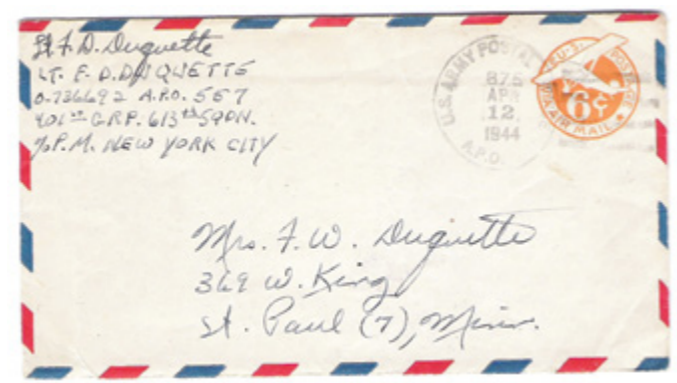 Lt. F. D. Duquette
LT. F. D. DUQUETTE
O-736692 A.P.O. 557
401ST GRP. 613th SQDN.
℅ P.M. NEW YORK CITY
U.S. ARMY POSTAL
875
APR
12
1944
A.P.O.
U.S. POSTAGE
6¢
VIA AIR MAIL
Mrs. F. W. Duquette
369 W. King
St. Paul (7), Minn.